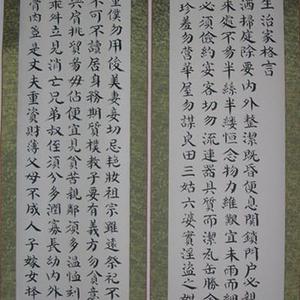 生治家格言
洒掃庭除要內外整潔既昏便息關鎖門戶必親
來處不易半絲半縷恒念物力維艱宜未雨而綢
必須儉約宴客切勿流連器具質而潔瓦缶勝金
珍羞勿營華屋勿謀良田三姑六婆實淫盜之媒
童僕勿用俊美妻妾切忌艷妝祖宗雖遠祭祀不
不可不讀居身務期質樸教子要有義方勿貪意
與肩挑貿易毋佔便宜見貧苦親鄰須多溫恤刻
乖舛立見消亡兄弟叔侄須分多潤寡長幼內外
骨肉豈是丈夫重資財薄父母不成人子嫁女擇